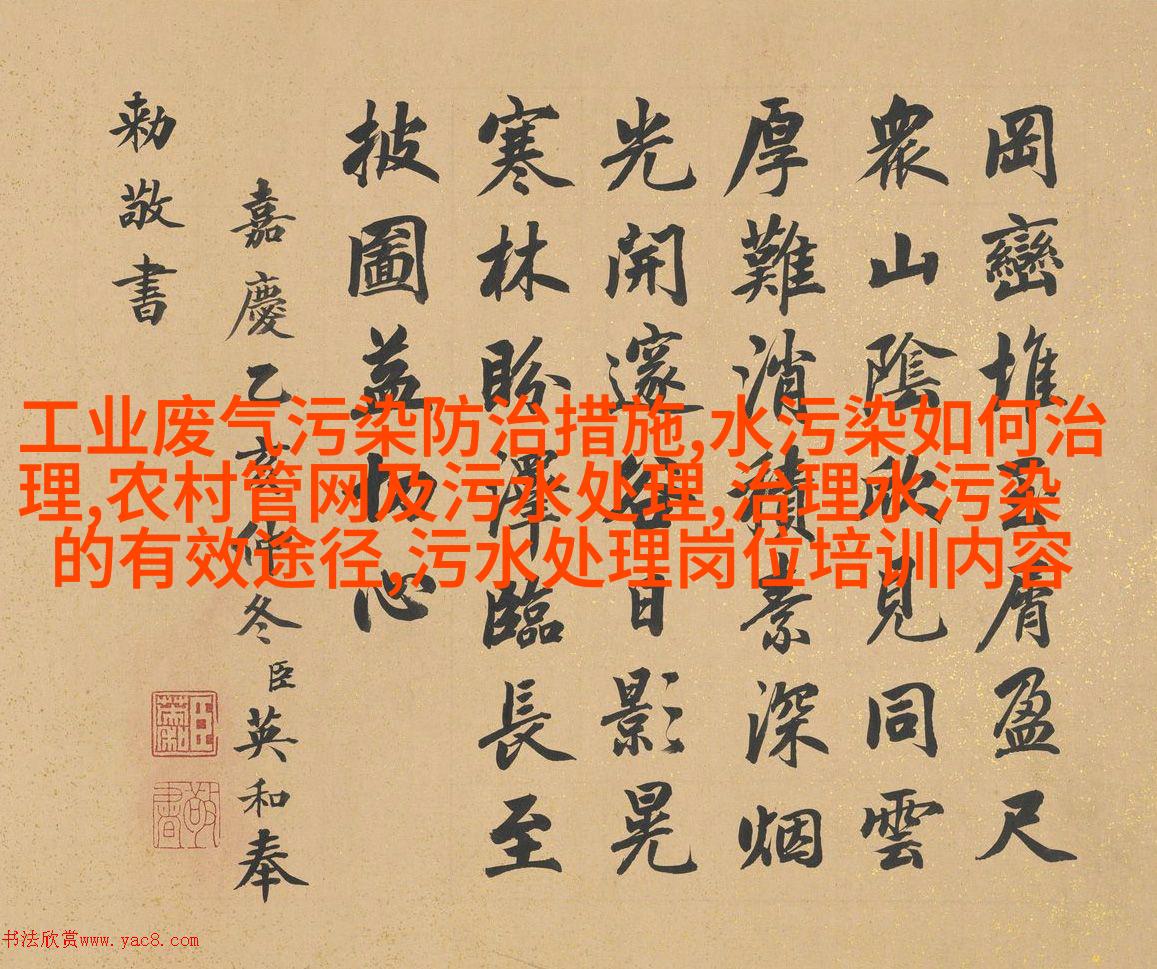 岡巒堆玉屑盈尺
衆山陰欣見同雲
厚難消積素深烟
光開邃日影晃
寒林盼澤臨長至
披圖益切心
嘉慶乙亥仲冬臣英和奉
勅敬書
敬書
工业废气污染防治措施,水污染如何治
理,农村管网及污水处理,治理水污染
的有效途径,污水处理岗位培训内容
书法欣赏www.yac8.com